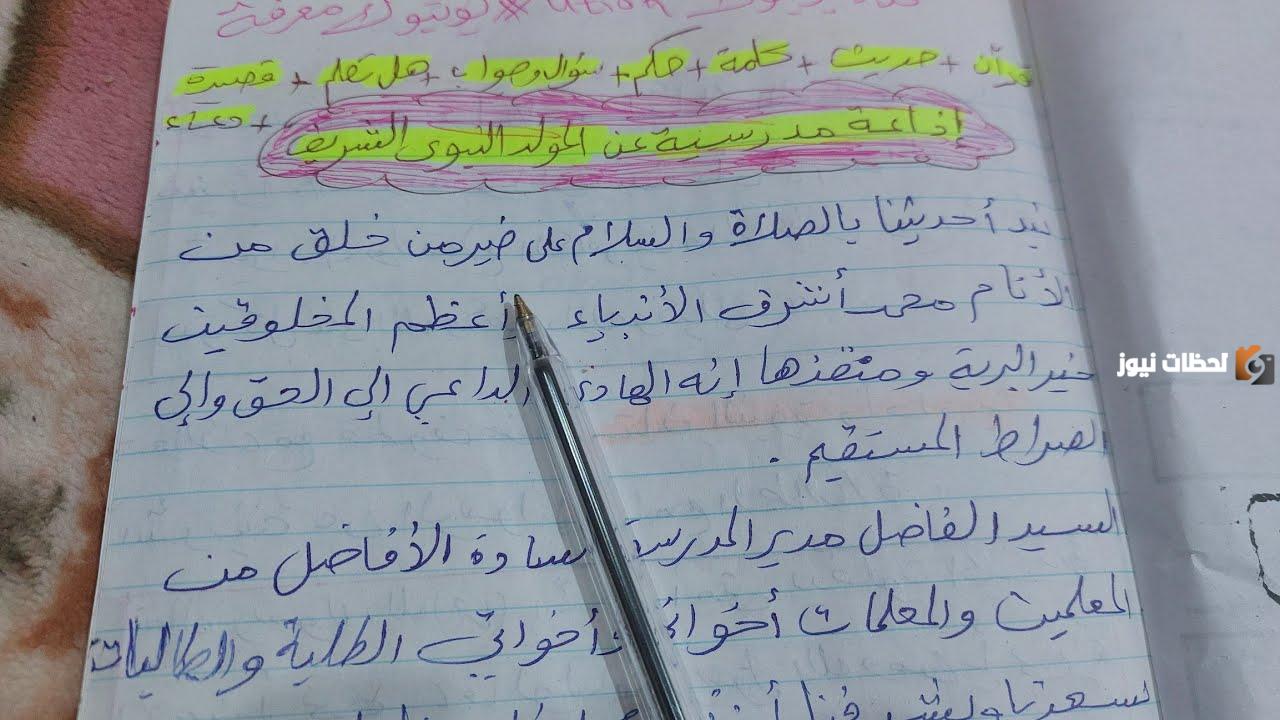 قرآن + حديث + كلمة + حكم + سؤال وجواب + هل تعلم + قصيرة
+ دعاء
إذاعة مدرسية عن المولد النبوى الشريف
نبدأ حديثنا بالصلاة والسلام على خير من خلق من
الأنام محمد أشرف الأنبياء أعظم المخلوقين
خير البرية ومنقذها إنه الهادى الداعي إلي الحق وإلي
الصراط المستقيم.
السيد الفاضل مدير المدرسة السادة الأفاضل من
المعلمين والمعلمات أخواتي وأخواتي الطلبة والطالبات
لحظات نيوز